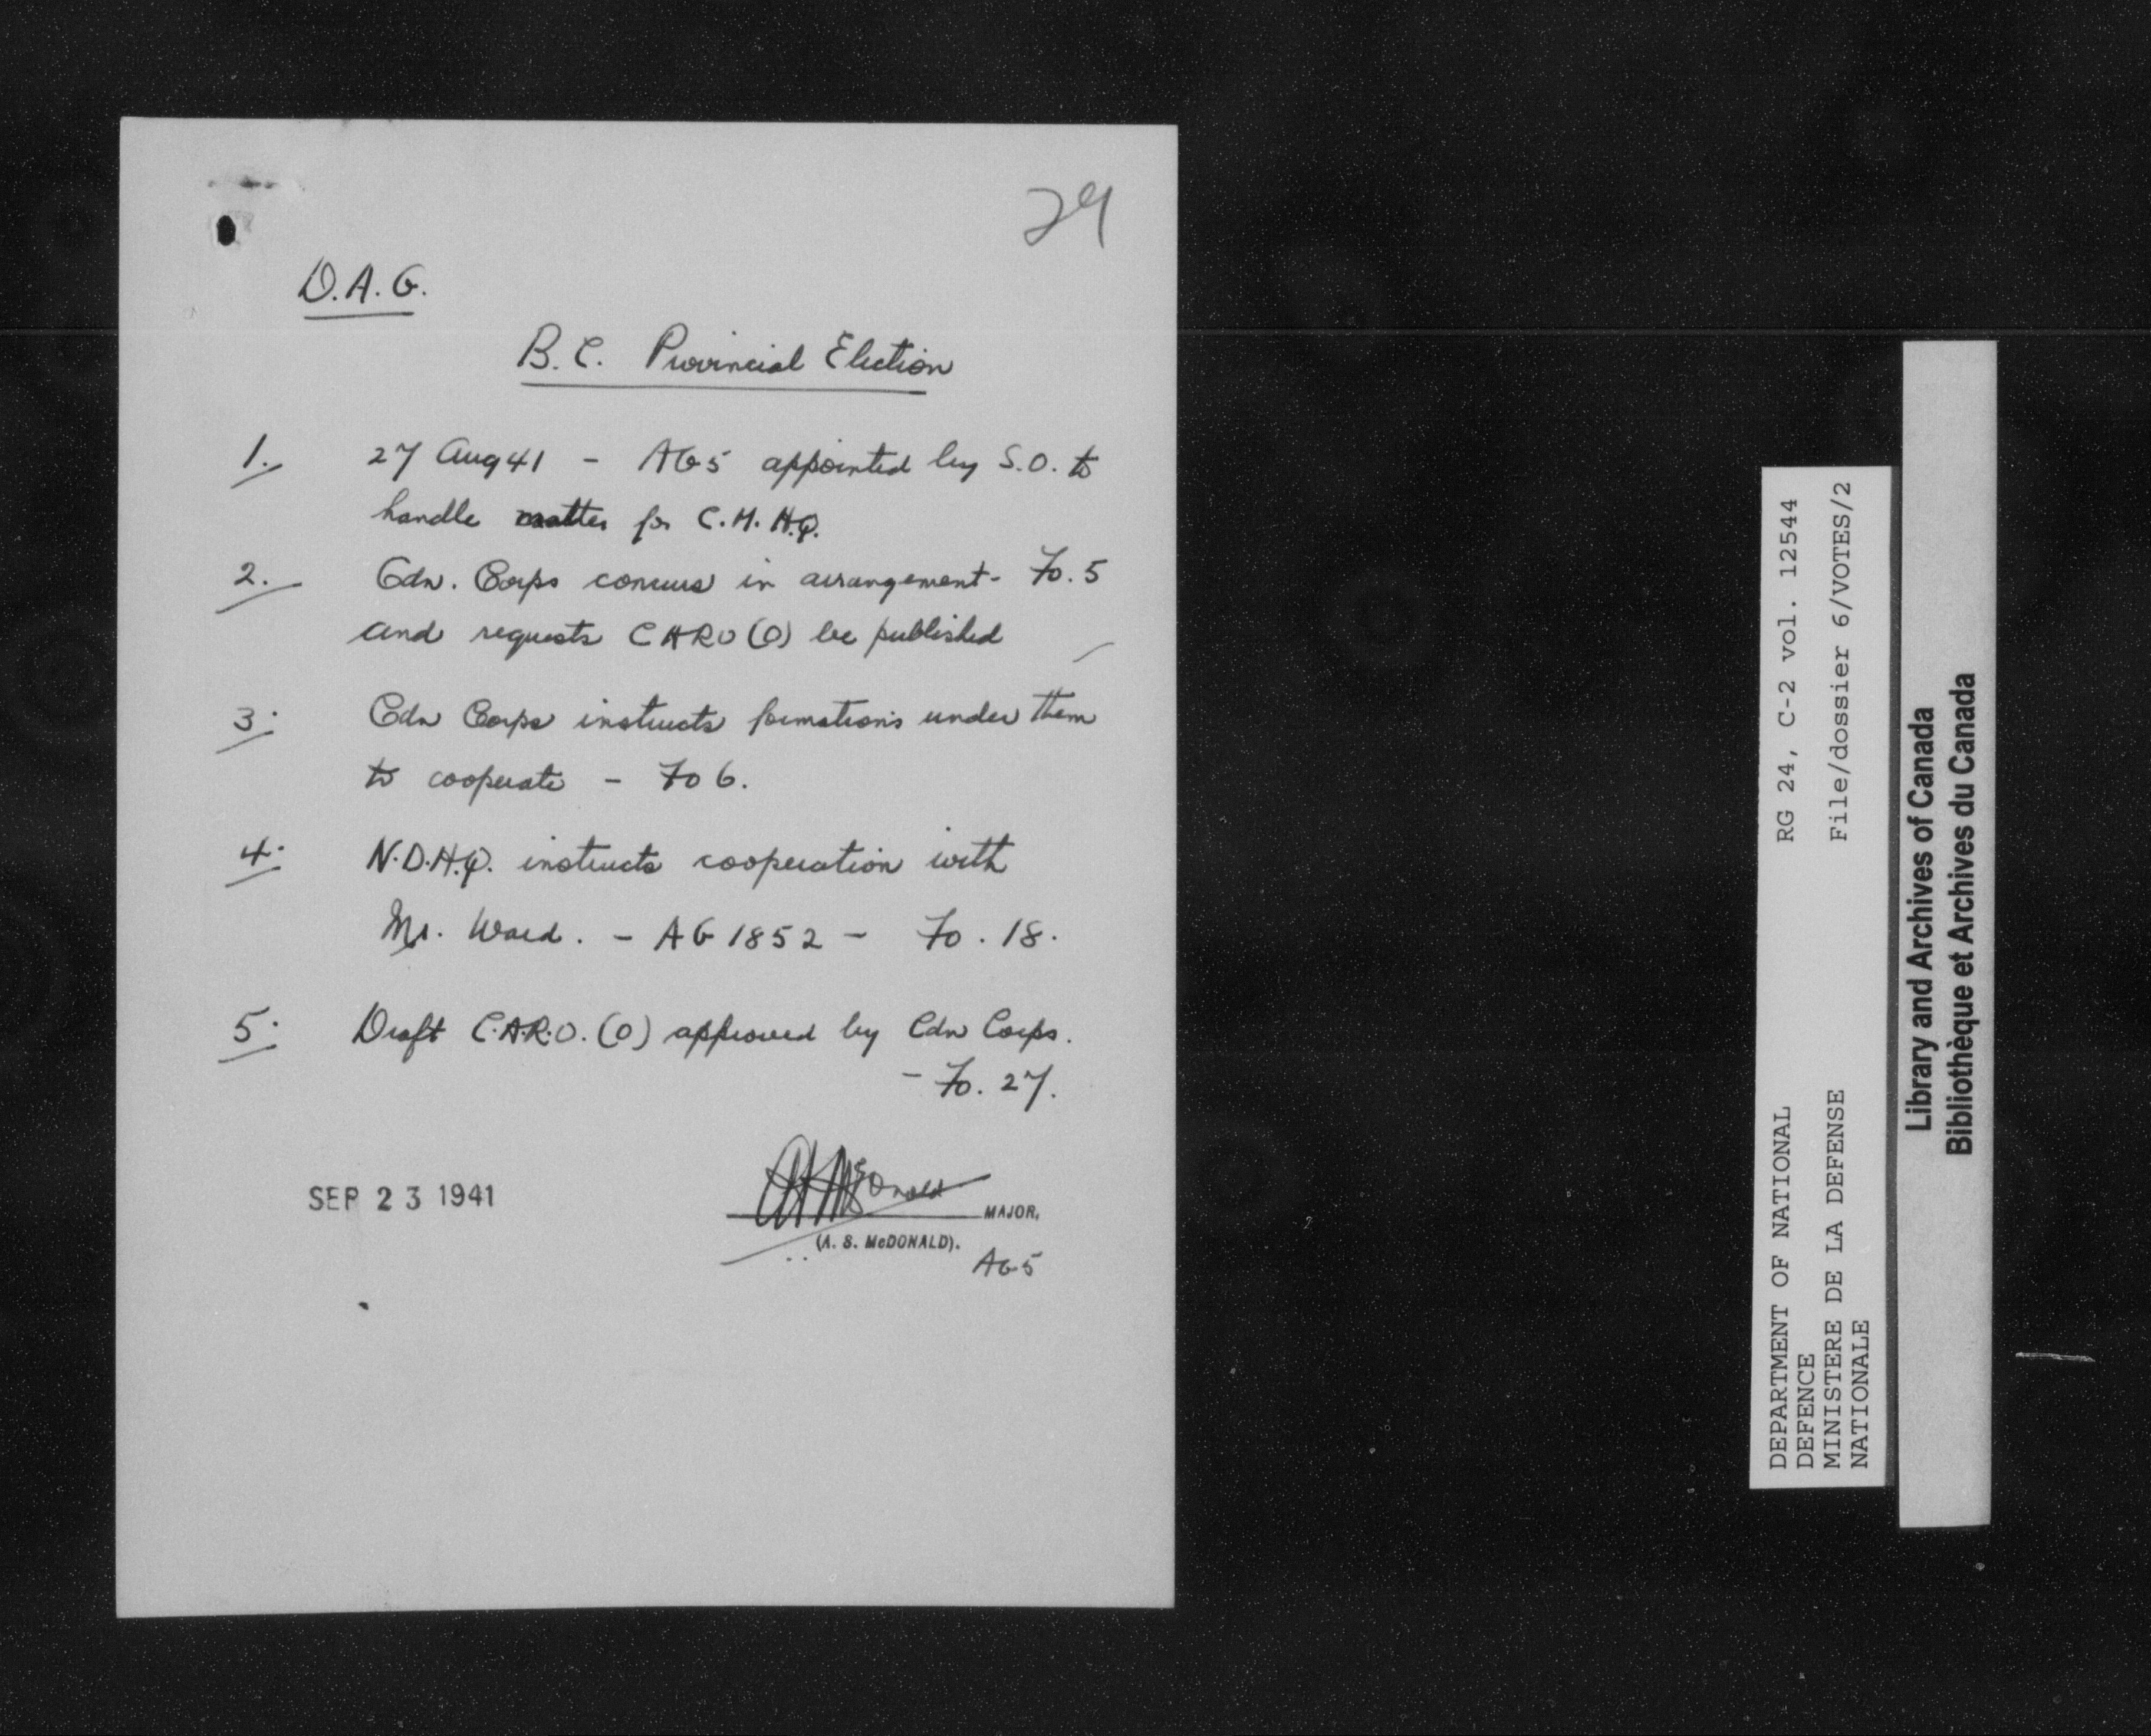 29
D.A.G.
B.C. Provincial Election
1. 27 Aug 41 - AG5 appointed by S.O. to
handle matter for C.M.H.Q.
2. Cdn. Corps concurs in arrangement - Fo. 5
and requests CARO (O) be published
3. Cdn Corps instructs formations under them
to cooperate - Fo 6.
4. N.D.H.Q. instructs cooperation with
Mr. Ward. - AG 1852 - Fo. 18.
5. Draft C.A.R.O. (O) approved by Cdn Corps.
- Fo. 27.
SEP 23 1941
ASMcDonald
MAJOR,
(A. S. McDONALD).
AG5
DEPARTMENT OF NATIONAL
DEFENCE
MINISTERE DE LA DEFENSE
NATIONALE
RG 24, C-2 vol. 12544
File/dossier 6/VOTES/2
Library and Archives of Canada
Bibliothèque et Archives du Canada